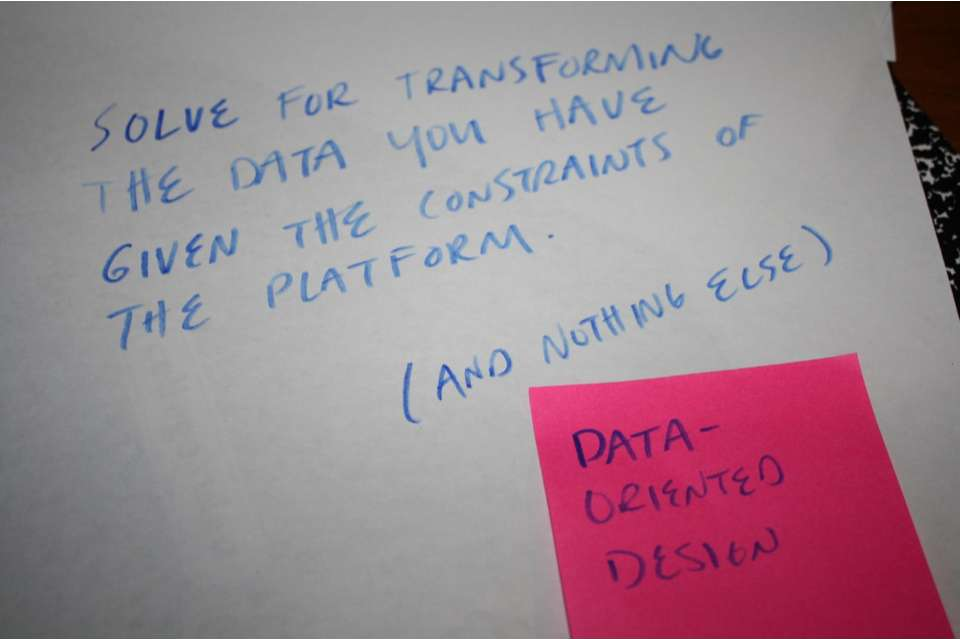 SOLVE FOR TRANSFORMING
THE DATA YOU HAVE
GIVEN THE CONSTRAINTS OF
THE PLATFORM.
(AND NOTHING ELSE)
DATA-
ORIENTED
DESIGN